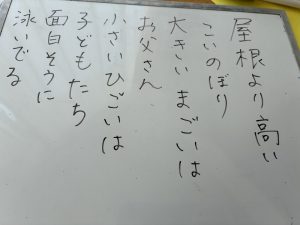 屋根より高い
こいのぼり
大きいまごいは
お父さん
小さいひごいは
子どもたち
面白そうに
泳いでる